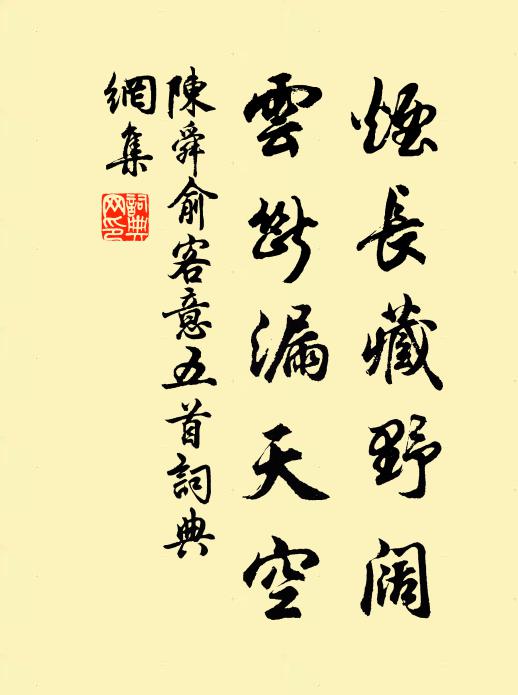 煙長藏野阔
雲斷漏天空
陳舜俞客意五首詞典
網集
詞典
网印